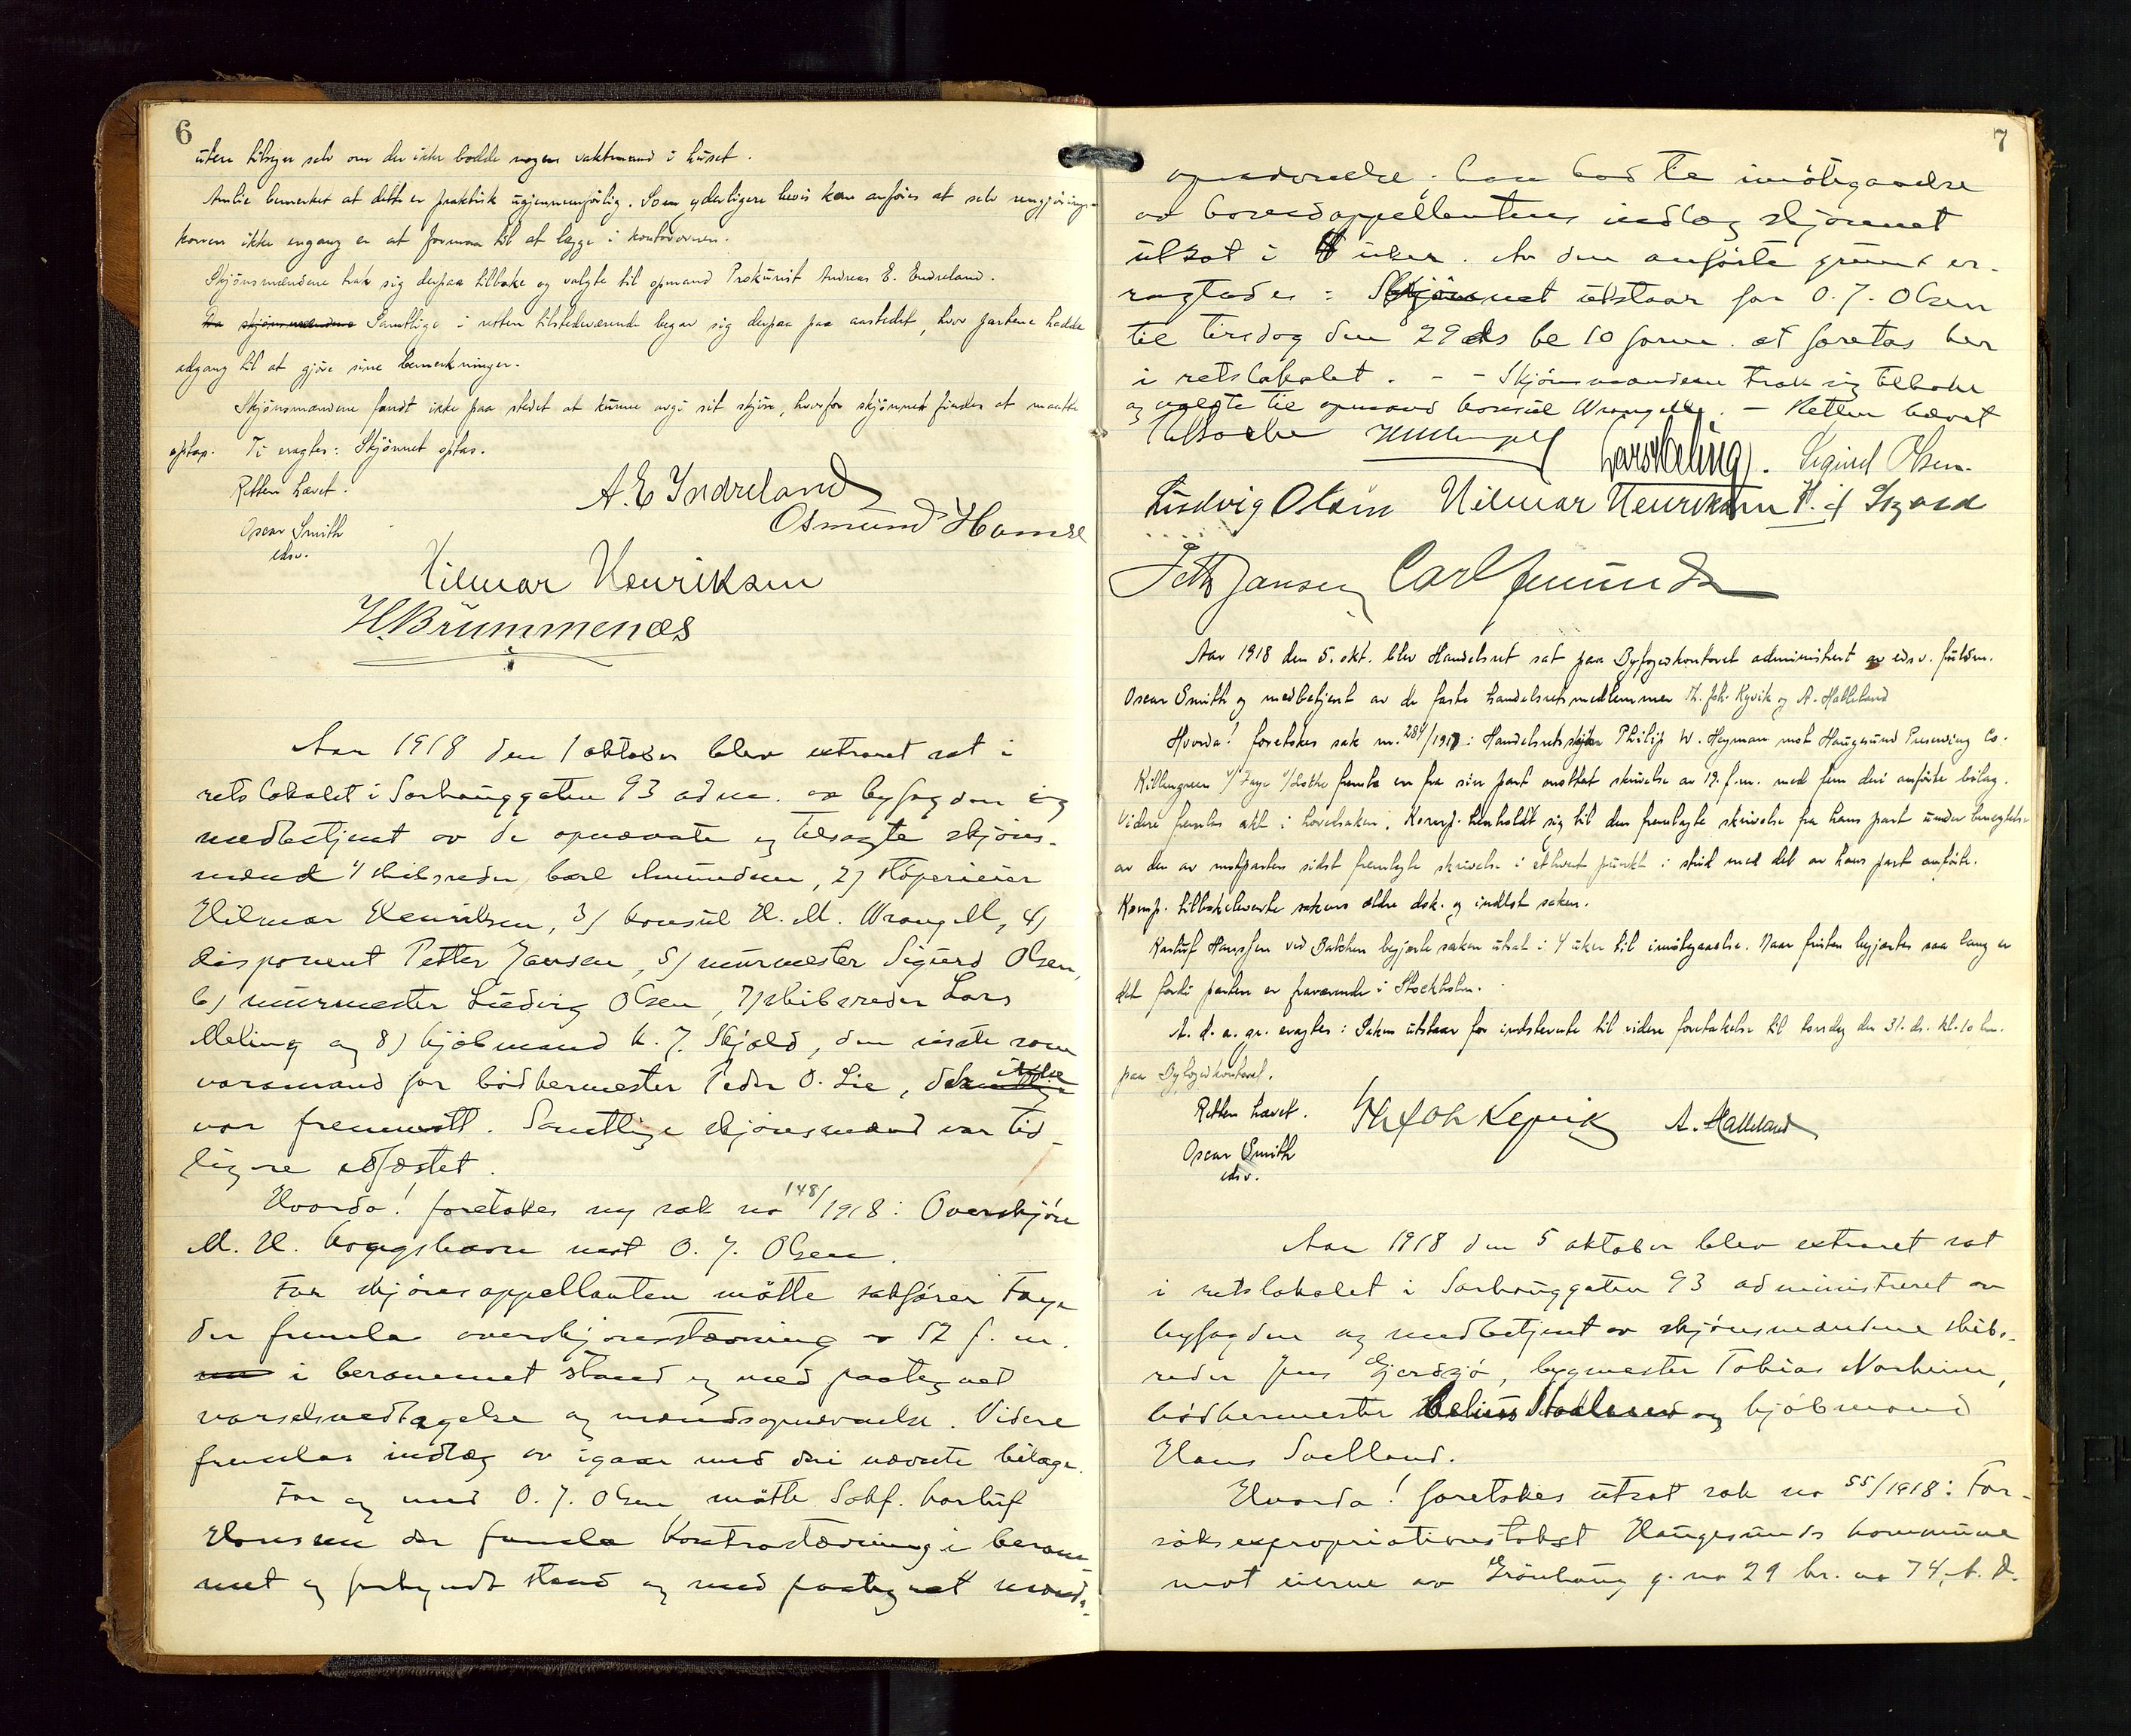 6
uten tilsyn selv om der ikke bodde nogen vaktmand i huset.
Amlie bemerket at dette er praktisk ugjennemførlig. Som yderligere bevis kan anføres at selv rengjörings-
konen ikke engang er at formaa til at lægge i kontorovnen.
Skjønsmændene trak sig derpaa tilbake og valgte til opmand Prokurist Andreas E. Endreland.
Samtlige i retten tilstedeværende begav sig derpaa paa aastedet, hvor partene hadde
adgang til at gjøre sine bemerkninger.
Skjönsmændene fandt ikke paa stedet at kunne avgi sit skjön, hvorfor skjönnet findes at maatte
optas. Ti eragtes: Skjönnet optas.
Retten hævet.
A. E Indreland
Oscar Smith
edsv.
Osmund Hamre
Hilmar Henriksen
H. Brummenæs
Aar 1918 den 1 oktober blev extraret sat i
retslokalet i Sørhauggaten 93 adm. av byfogden og
medbetjent av de opnævnte og tilsagte skjöns-
mænd 1) skibsreder Carl Amundsen, 2) Köperieier
Hilmar Henriksen, 3) konsul H. M. Wrangell, 4)
disponent Petter Jansen, 5) murmester Sigurd Olsen,
6) murmester Ludvig Olsen, 7) skibsreder Lars
Meling og 8) kjöbmand K. J. Skjold, den sidste som
varamand for bödkermester Peder O. Lie, der ikke
var fremmött. Samtlige skjönsmænd var tid-
ligere edfæstet.
Hvorda! foretokes ny sak no 148/1918: Overskjön
M. H. Kroggshavn mot O. J. Olsen.
For skjönsappellanten mötte sakförer Faye
der fremla overskjönsstævning av 17 f. m.
i berammet stand og med paategnet
varselsvedtagelse og mandsopnævnelse. Videre
fremlas indlæg av igaar med deri nævnte bilage.
For og med O. J. Olsen mötte Sakf. Karluf
Hanssen der fremla Kontrastævning i beram-
met og forkyndt stand og med paategnet mands-
7
opnævnelse. Han bad til imötegaaelse
av hovedappellantens indlæg skjönnet
utsat i 4 uker. Av den anförte grund er-
ragtedes: Skjönnet utstaar for O. J. Olsen
til tirsdag den 29 ds kl 10 form. at foretas her
i retslokalet. - - Skjönsmændene trak sig tilbake
og valgte til opmand konsul Wrangell. - Retten hævet
HMWrangell Lars Meling. Sigurd Olsen.
Ludvig Olsen Hilmar Henriksen K. J. Skjold
Pettr Jansen Carl Amundsen
Aar 1918 den 5. okt. blev Handelsret sat paa Byfogedkontoret administrert av edsv. fuldm.
Oscar Smith og medbetjent av de faste handelsretsmedlemmer Th. Joh. Kyvik og A. Halleland
Hvorda! foretokes sak nr. 284/1917: Handelsretssaken Philip W. Heyman mot Haugesund Preserving Co.
Killengreen v/ Faye v/ Lothe fremla en fra sin part mottat skrivelse av 19. f.m. med fem deri anförte bilag.
Videre fremlas akt i hovedsaken. Komp. henholdt sig til den fremlagte skrivelse fra hans part under benegtelse
av den av motparten sidst fremlagte skrivelse i ethvert punkt i strid med det av hans part anförte.
Komp. tilbakeleverte sakens ældre dok. og indlot saken.
Karluf Hanssen ved Bakken begjærte saken utsat i 4 uker til imötegaaelse. Naar fristen begjærtes saa lang er
det fordi parten er fraværende i Stockholm.
A. d. a. gr. eragtes: Saken utstaar for indstevnte til videre foretakelse til torsdag den 31. ds. kl. 10 fm.
paa Byfogedkontoret.
Retten hævet.
Th Joh Kyvik A. Halleland
Oscar Smith
edsv.
Aar 1918 den 5 oktober blev extraret sat
i retslokalet i Sørhauggaten 93 administreret av
byfogden og medbetjent av skjönsmændene skibs-
reder Jens Gjerdsjö, bygmester Tobias Norheim,
bödkermester og kjöbmand
Hans Sælland.
Hvorda! foretokes utsat sak no 55/1918: For-
söksexpropriationstakst Haugesunds kommune
mot eierne av Grönhaug g. no 29 br. no 74, A. D.